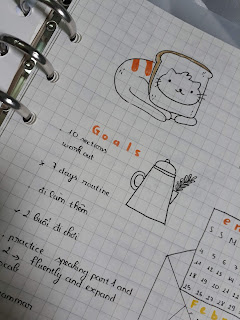 Goals
. 10 sections
work out
x 7 days routine
đi làm thêm
x 2 buổi đi chơi
. practice speaking part 1 and
2 → fluently and expand
vocab
grammar
S S M
4 5 6
11 12 13
18 19 20
25 26 27